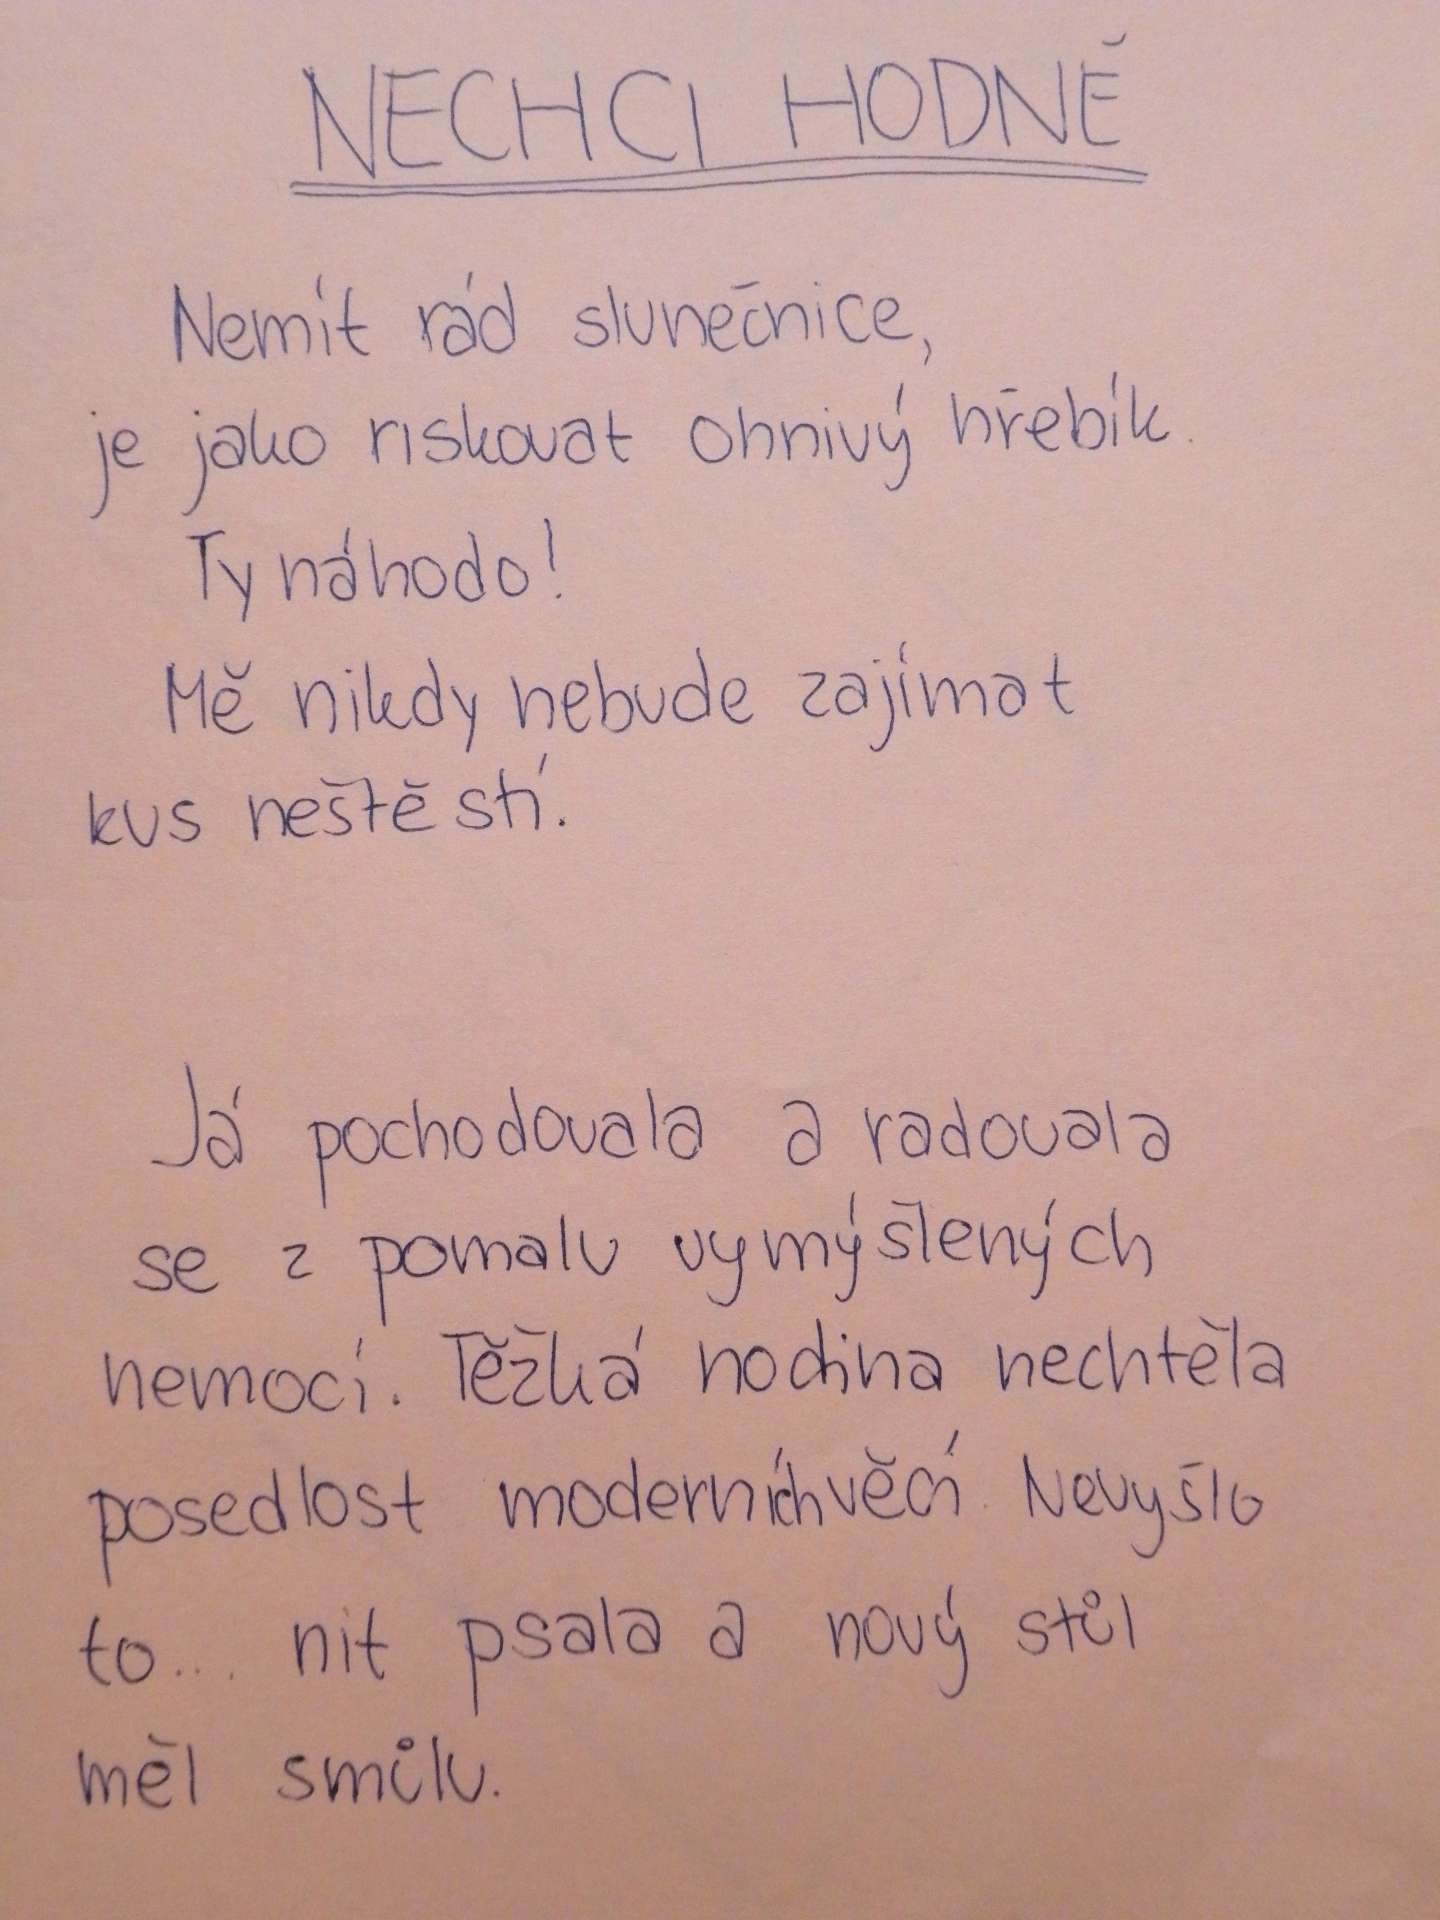 NECHCI HODNĚ
Nemít rád slunečnice,
je jako riskovat ohnivý hřebík.
Ty náhodo!
Mě nikdy nebude zajímat
kus neštěstí.
Já pochodovala a radovala
se z pomalu vymýšlených
nemocí. Těžká hodina nechtěla
posedlost moderních věcí. Nevyšlo
to... nit psala a nový stůl
měl smůlu.